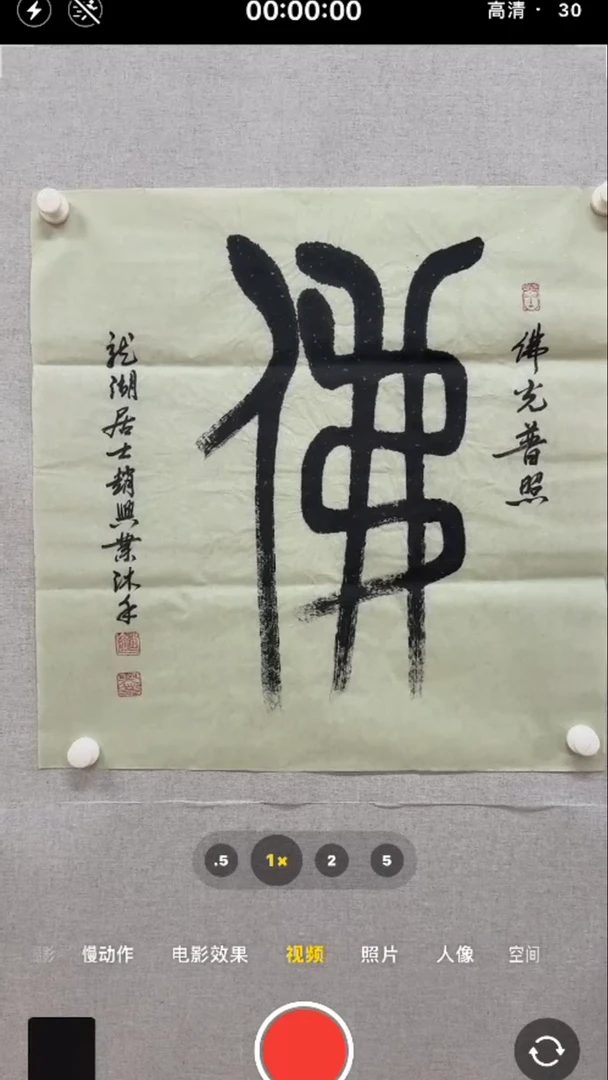 00:00:00
高清 · 30
佛光普照
佛
龙湖居士趙興業沐手
.5
1×
2
5
慢动作
电影效果
视频
照片
人像
空间